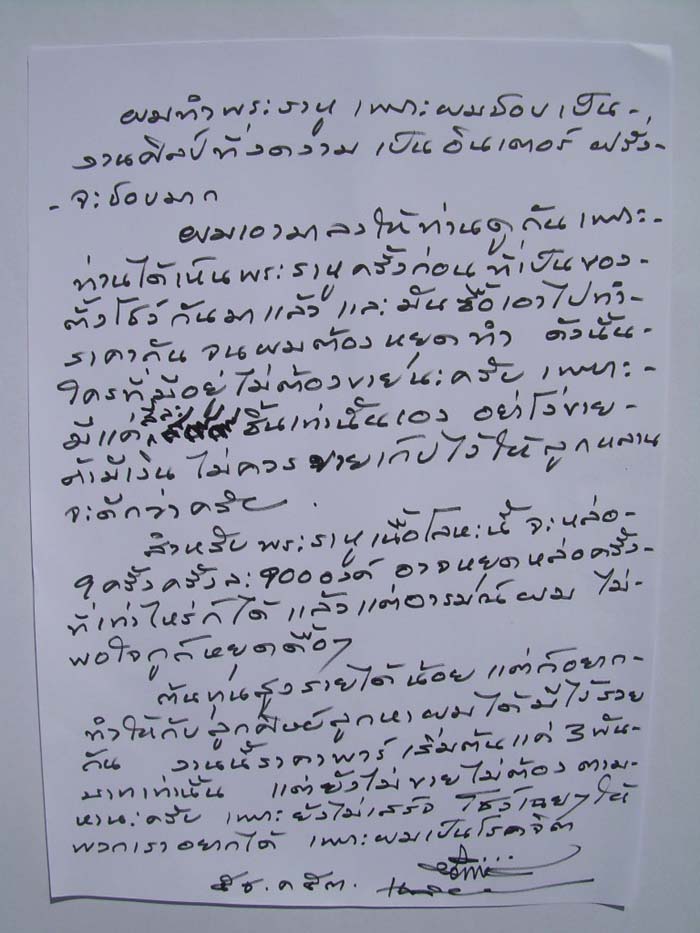 ผมทำพระราหู เพราะผมชอบ เป็น-
งานศิลป์ที่งดงาม เป็นอินเตอร์ ฝรั่ง-
- จะชอบมาก
ผมเอามาลงให้ท่านดูกัน เพราะ-
ท่านได้เห็นพระราหูครั้งก่อน ที่เป็นของ-
ตั้งโชว์กันมาแล้ว และมันซื้อเอาไปทำ
ราคากัน จนผมต้องหยุดทำ ดังนั้น-
ใครที่มีอยู่ไม่ต้องขายนะครับ เพราะ-
มีแค่ ชิ้นเท่านั้นเอง อย่าโง่ขาย-
ถ้ามีเงิน ไม่ควรขายเก็บไว้ให้ลูกหลาน
จะดีกว่าครับ .
สำหรับพระราหูเนื้อโลหะนี้ จะหล่อ-
9 ครั้งครั้งละ 900 องค์ อาจหยุดหล่อครั้ง-
ที่เท่าไหร่ก็ได้ แล้วแต่อารมณ์ผม ไม่-
พอใจกูก็หยุดดื้อๆ
ต้นทุนสูงรายได้น้อย แต่ก็อยาก-
ทำให้กับลูกศิษย์ลูกหาผมได้มีไว้รวย
กัน งานนี้ราคาพาร์ เริ่มต้นแค่ 3 พัน-
บาทเท่านั้น แต่ยังไม่ขายไม่ต้องตาม-
หานะครับ เพราะยังไม่เสร็จ โชว์เฉยๆ ให้
พวกเราอยากได้ เพราะผมเป็นโรคจิต